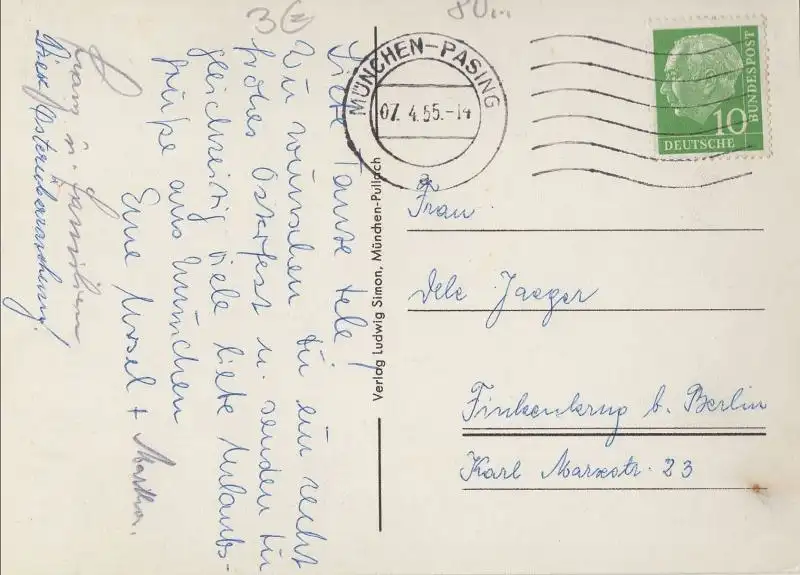 3 €
MÜNCHEN-PASING
07. 4. 55.-14
10
DEUTSCHE
BUNDESPOST
Liebe Tante Dele!
Wir wünschen Dir ein recht
frohes Osterfest u. senden Dir
gleichzeitig viele liebe Urlaubs-
grüße aus München
Eure Ursel + Martha.
u. Familien
Osterüberraschung!
Verlag Ludwig Simon, München-Pullach
Frau
Dele Jaeger
Finkenkrug b. Berlin
Karl Marxstr. 23